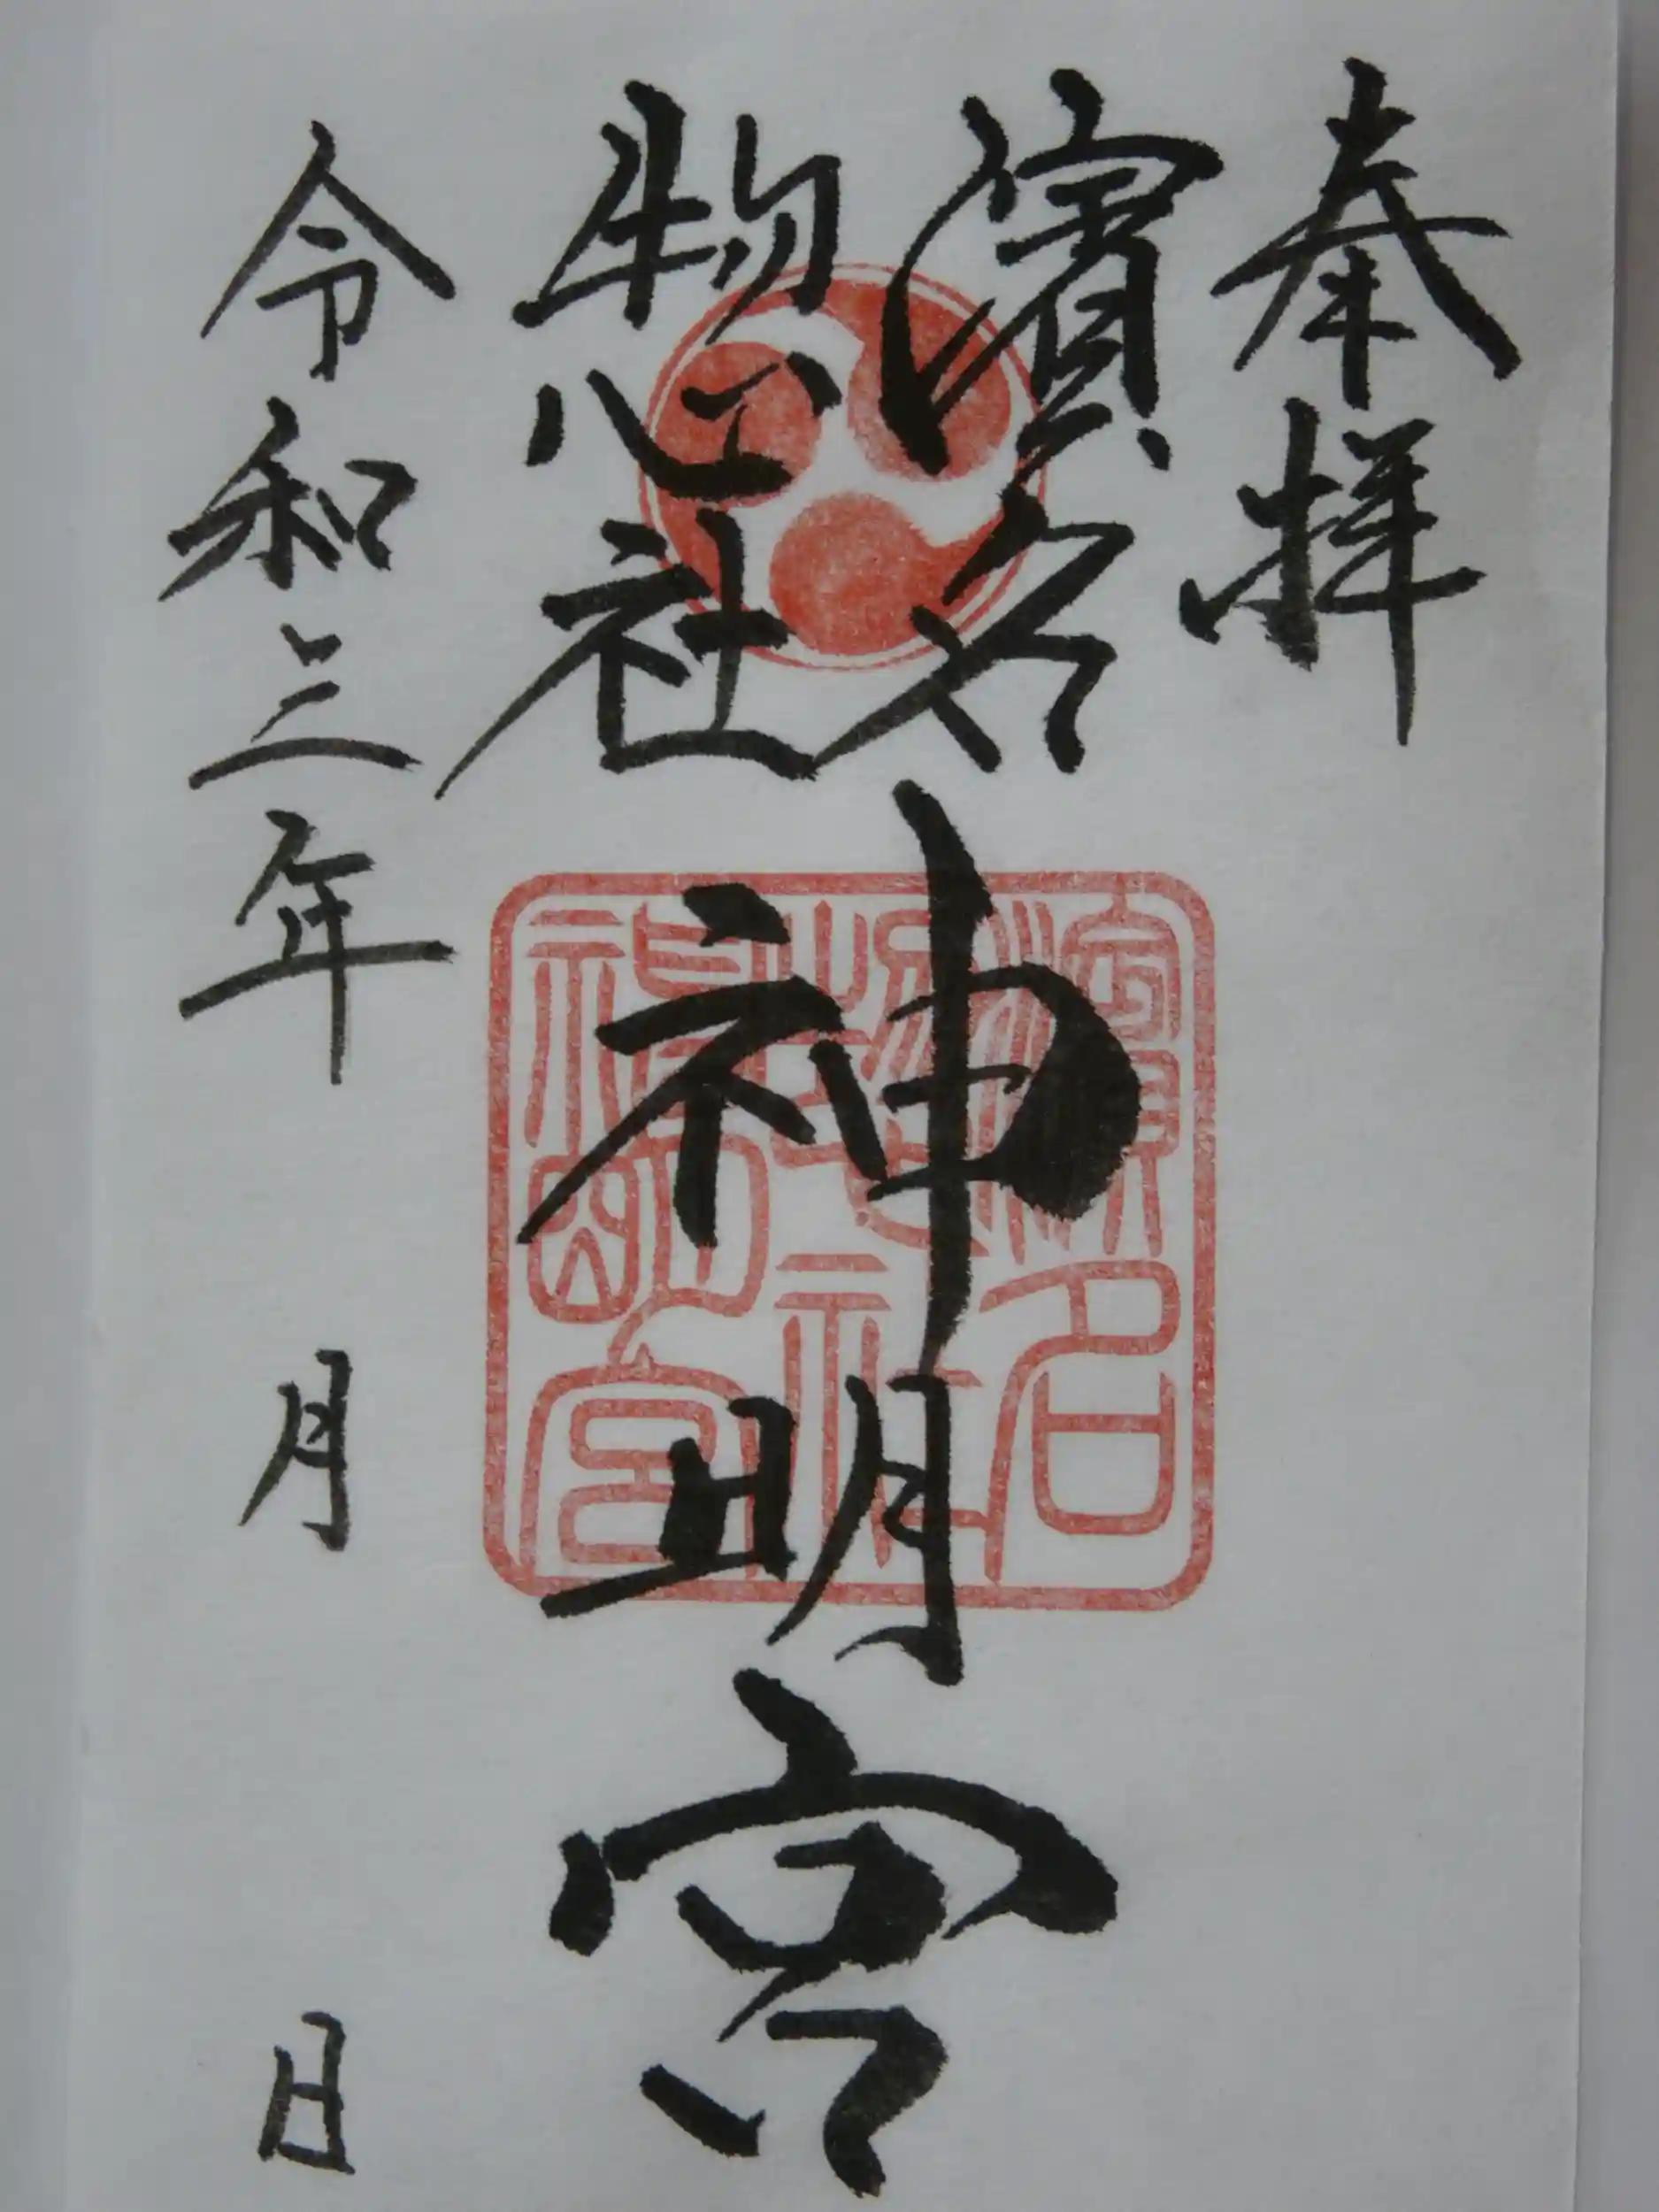 奉拝
濱名
惣社
神明宮
令和三年 月 日
濱名
惣社
神明宮